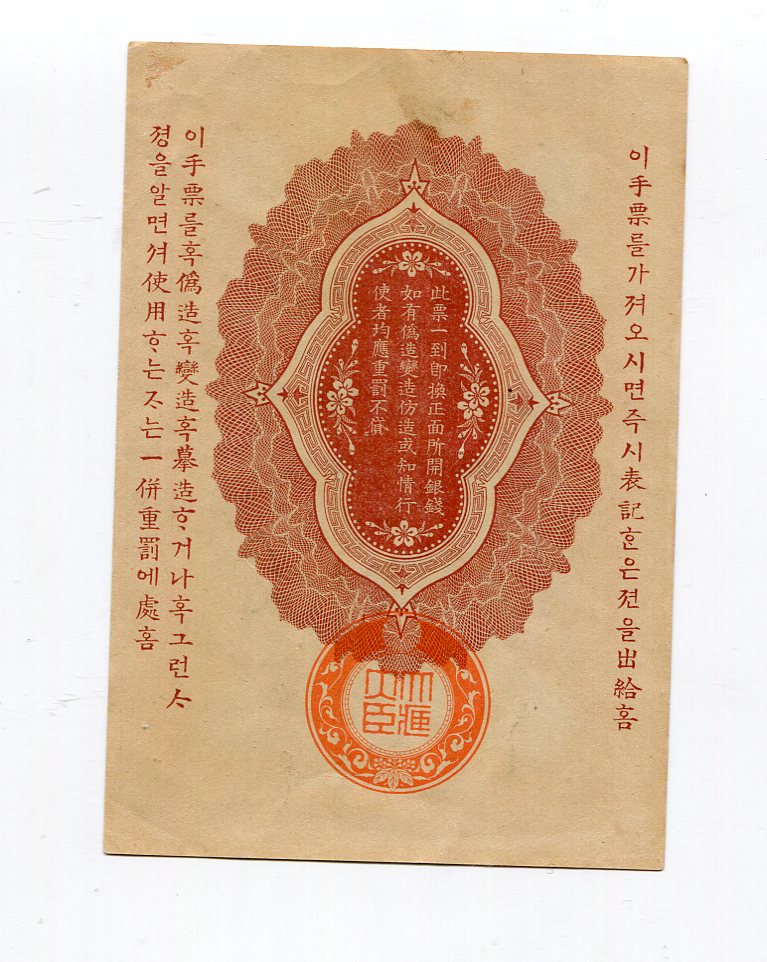 이手票를가져오시면즉시表記ᄒᆞᆫ은젼을出給홈
此票一到即換正面所開銀錢
如有僞造變造仿造或知情行
使者均應重罰不貸
이手票를혹僞造혹變造혹摹造ᄒᆞ거나혹그런ᄉᆞ
졍을알면셔使用ᄒᆞ는ᄌᆞ는一併重罰에處홈
大藏
大臣